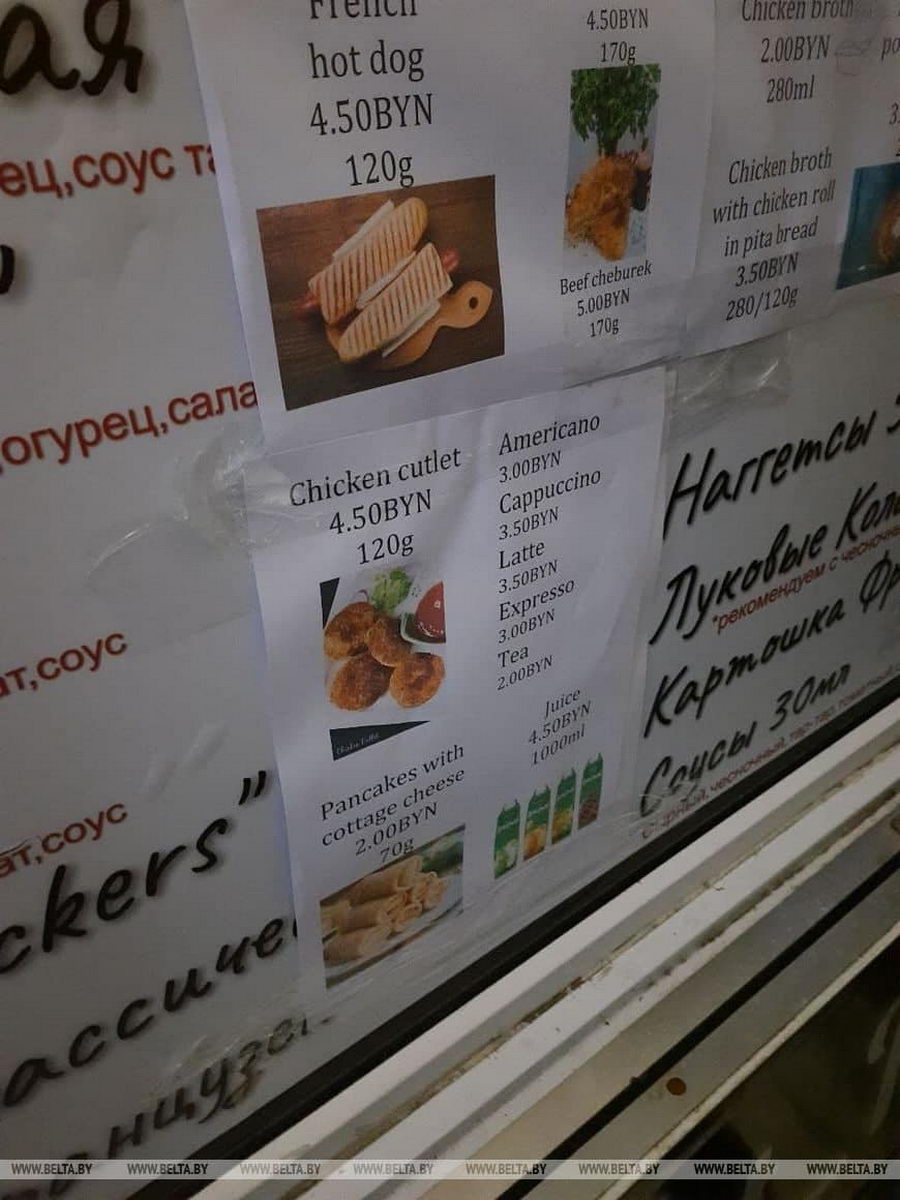 ая
ец,соус та
French
hot dog
4.50BYN
120g
4.50BYN
170g
Beef cheburek
5.00BYN
170g
Chicken broth
2.00BYN
280ml
Chicken broth
with chicken roll
in pita bread
3.50BYN
280/120g
po
3.
огурец,сала
ат,соус
ат,соус
ckers”
ассичес
анцузс
Chicken cutlet
4.50BYN
120g
Pancakes with
cottage cheese
2.00BYN
70g
Americano
3.00BYN
Cappuccino
3.50BYN
Latte
3.50BYN
Expresso
3.00BYN
Tea
2.00BYN
Juice
4.50BYN
1000ml
Наггетсы
Луковые Коль
*рекомендуем с чесночны
Картошка Фр
Соусы 30мл
сырный, чесночный, тар-тар, томатный
WWW.BELTA.BY WWW.BELTA.BY WWW.BELTA.BY WWW.BELTA.BY WWW.BELTA.BY WWW.BELTA.BY WWW.BELTA.BY WWW.BELTA.BY